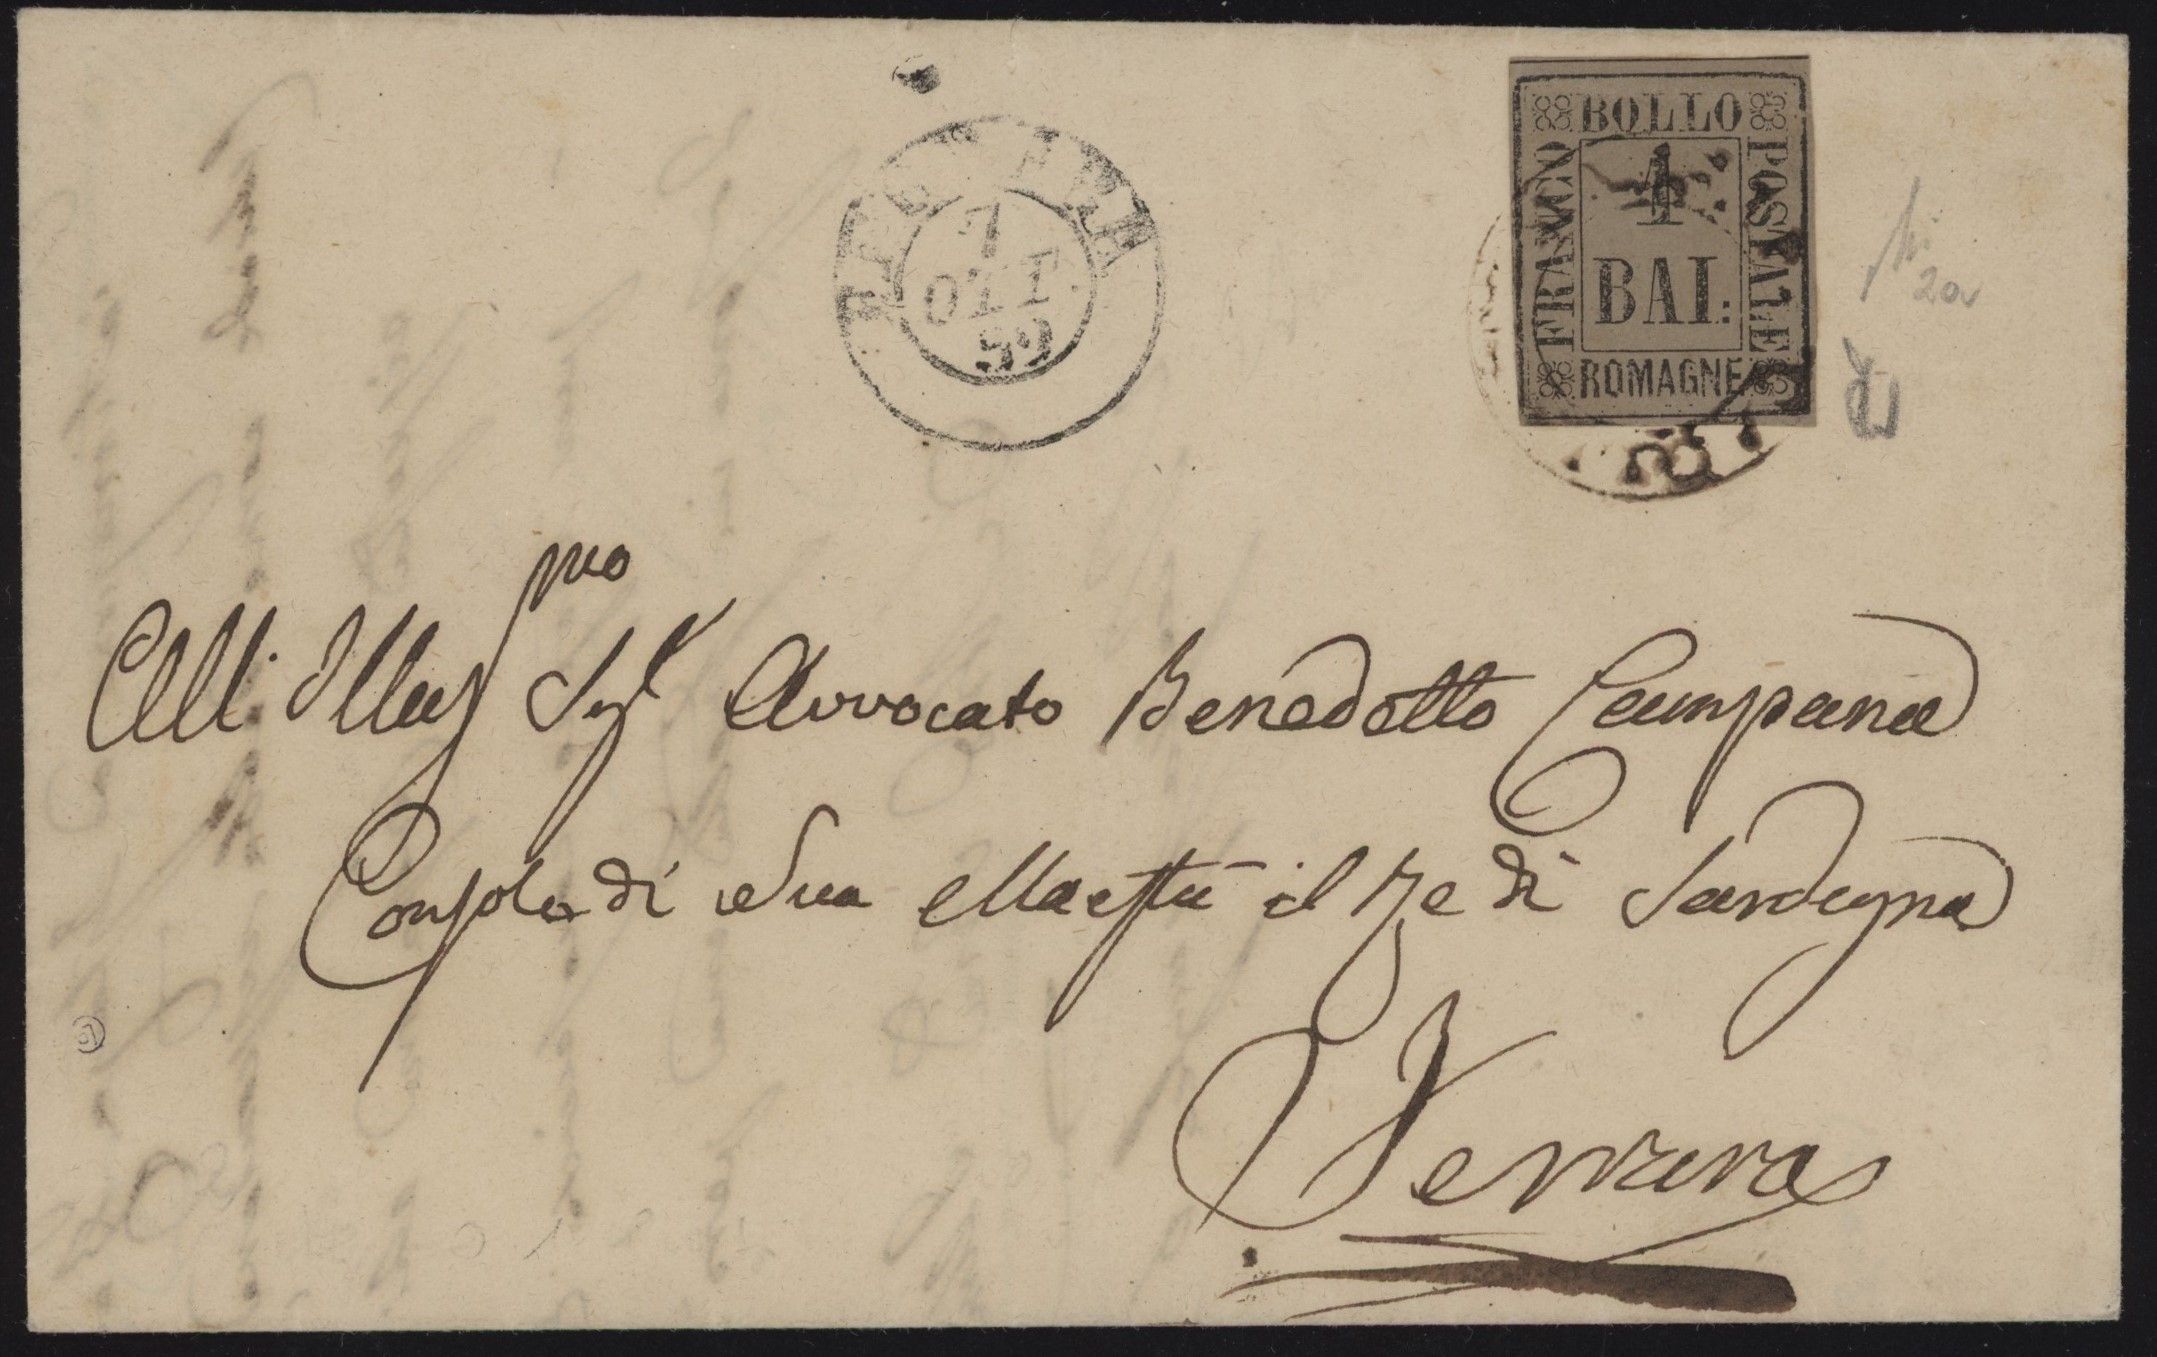 7
OTT.
59
BOLLO
FRANCO
POSTALE
1
BAI:
ROMAGNE
All' Illus^mo Sig^r Avvocato Benedetto Campana
Console di Sua Maestà il Re di Sardegna
Ferrara